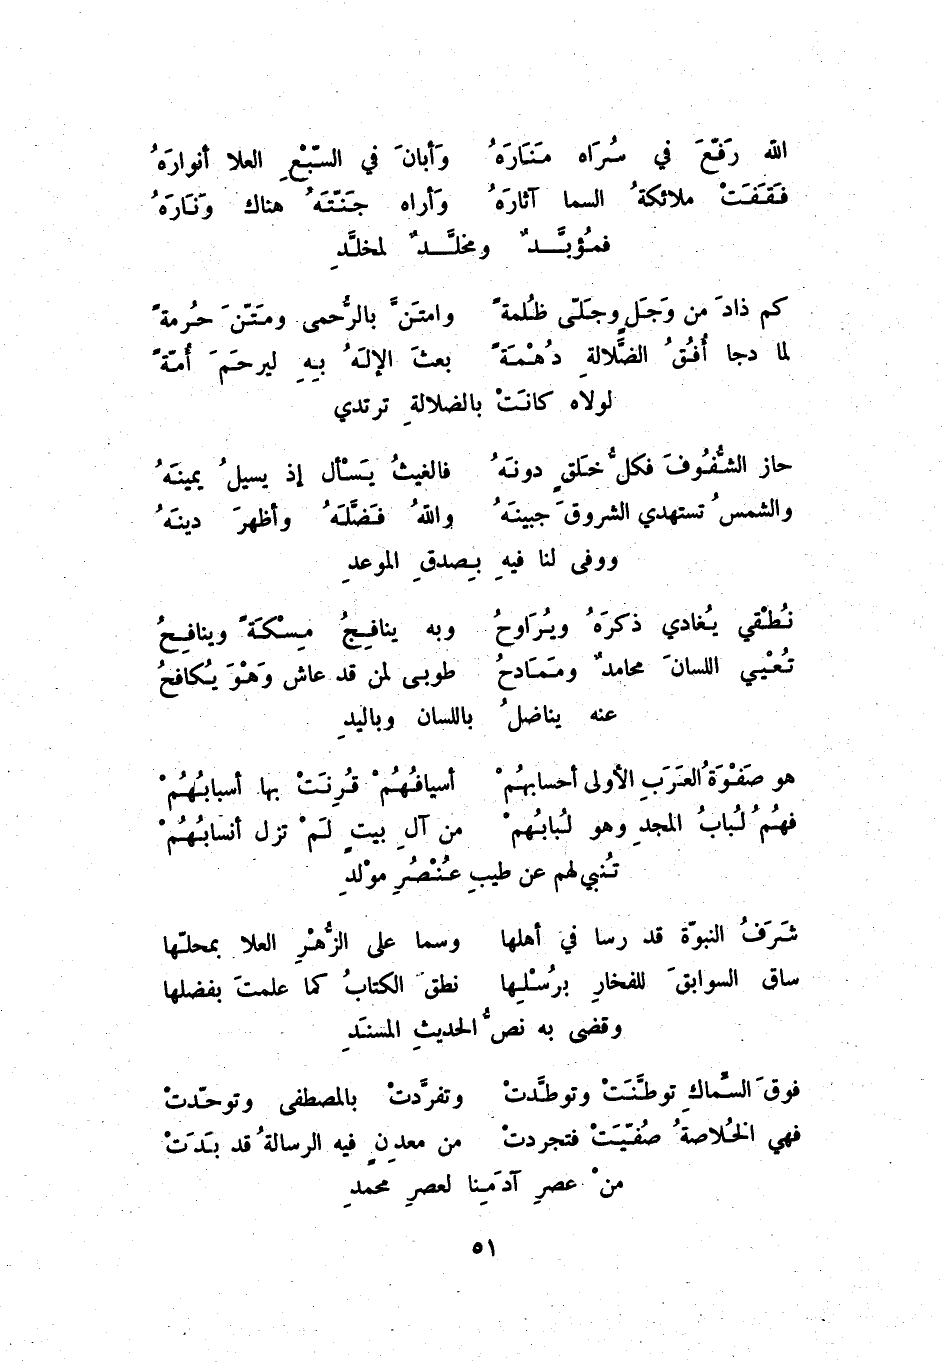 الله رَفّعَ في سُرَاه مَنَارَهُ وَأبانَ في السّبْعِ العلا أنوارَهُ
فَقَفَتْ ملائكةُ السما آثارَهُ وَأراه جَنّتَهُ هناك وَنَارَهُ
فمُؤبَّدٌ ومخلَّدٌ لمخلَّدِ
كم ذادَ من وَجَلٍ وجَلّى ظُلمةً وامتَنَّ بالرُّحمى ومَتّنَ حُرمةً
لما دجا أُفُقُ الضَّلالةِ دُهْمَةً بعثَ الإلهُ بِهِ ليرحَمَ أُمّةً
لولاه كانَتْ بالضلالةِ ترتدي
حاز الشُّفُوفَ فكلُّ خَلقٍ دونَهُ فالغيثُ يَسْأل إذ يسيلُ يمينَهُ
والشمسُ تستهدي الشروقَ جبينَهُ واللهُ فَضَّلَهُ وأظهرَ دينَهُ
ووفى لنا فيهِ بِصدقِ الموعدِ
نُطْقي يُغادي ذكرَهُ ويُرَاوحُ وبه ينافِجُ مِسْكَةً وينافِحُ
تُعْيي اللسانَ محامدٌ ومَمَادحُ طوبى لمن قد عاش وَهْوَ يُكافحُ
عنه يناضلُ باللسان وباليدِ
هو صَفْوَةُ العَرَبِ الأولى أحسابهُمْ أسيافُهُمْ قُرِنَتْ بها أسبابُهُمْ
فهُمُ لُبابُ المجدِ وهو لُبابُهمْ من آلِ بيتٍ لَمْ تزل أنسابُهُمْ
تُنبي لهم عن طيبِ عُنْصُرِ موْلدِ
شَرَفُ النبوّة قد رسا في أهلها وسما على الزُّهْرِ العلا بمحلّها
ساق السوابقَ للفخارِ برُسْلِها نطقَ الكتابُ كما علمتَ بفضلها
وقضى به نصُّ الحديثِ المسنَدِ
فوقَ السَّماكِ توطَّنَتْ وتوطَّدتْ وتفرَّدتْ بالمصطفى وتوحّدتْ
فهي الخُلاصةُ صُفّيَتْ فتجردتْ من معدنٍ فيه الرسالةُ قد بَدَتْ
منْ عصرِ آدَمِنا لعصرِ محمدِ
٥١